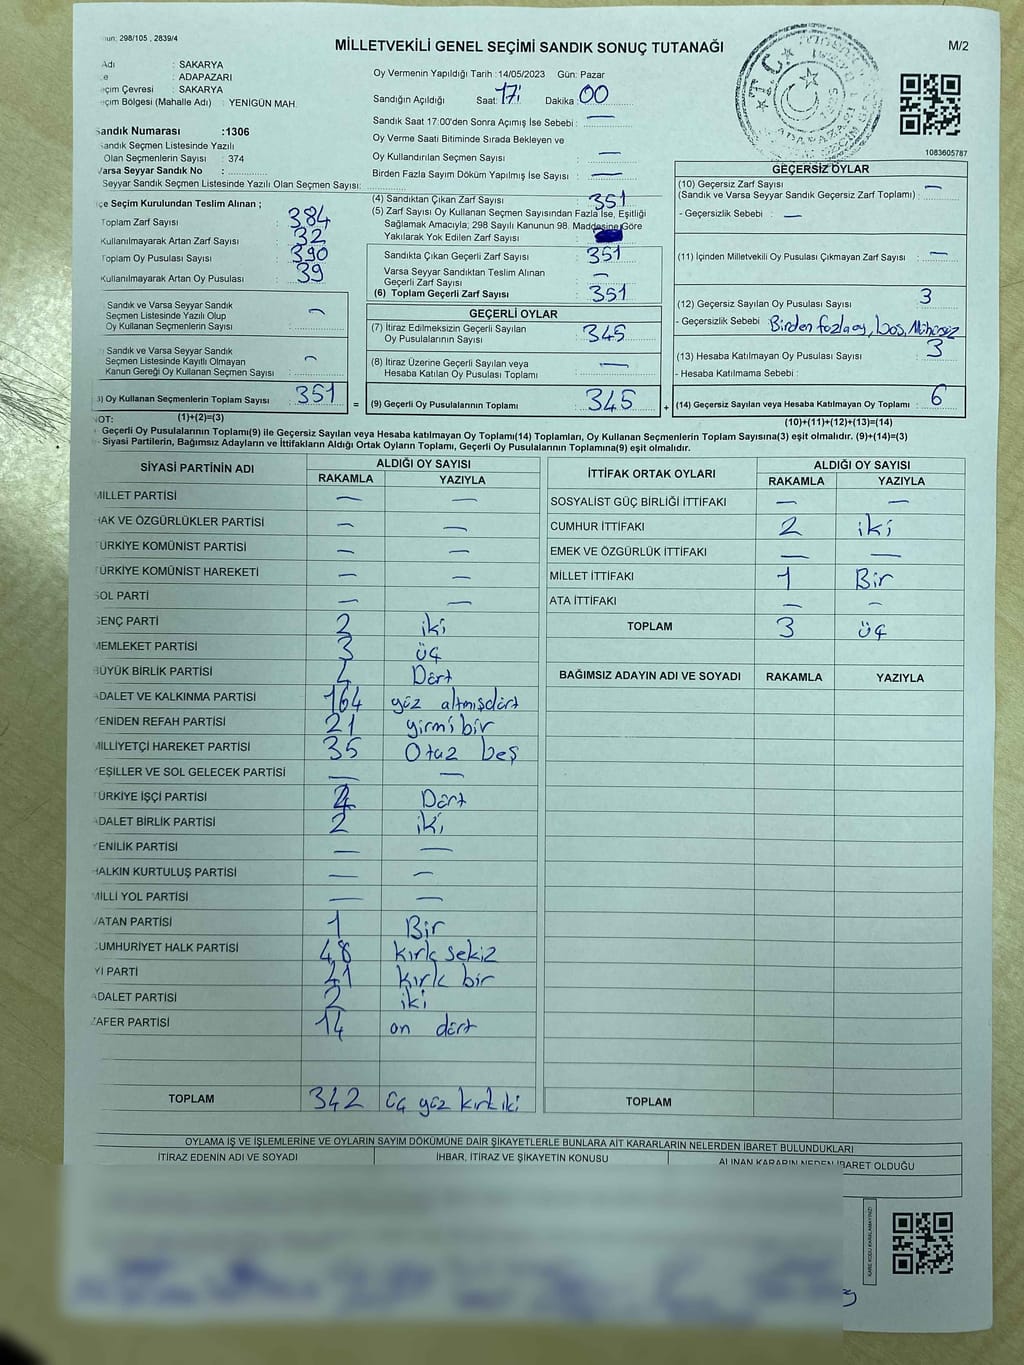 298/105 , 2839/4
MİLLETVEKİLİ GENEL SEÇİMİ SANDIK SONUÇ TUTANAĞI
M/2
Adı : SAKARYA
: ADAPAZARI
eçim Çevresi : SAKARYA
eçim Bölgesi (Mahalle Adı) : YENİGÜN MAH.
Oy Vermenin Yapıldığı Tarih :14/05/2023 Gün: Pazar
Sandığın Açıldığı Saat: 17 Dakika 00
Sandık Saat 17:00'den Sonra Açımış İse Sebebi : —
Oy Verme Saati Bitiminde Sırada Bekleyen ve
Oy Kullandırılan Seçmen Sayısı : —
Birden Fazla Sayım Döküm Yapılmış İse Sayısı : —
1083605787
Sandık Numarası :1306
Sandık Seçmen Listesinde Yazılı
Olan Seçmenlerin Sayısı : 374
Varsa Seyyar Sandık No :
Seyyar Sandık Seçmen Listesinde Yazılı Olan Seçmen Sayısı:
çe Seçim Kurulundan Teslim Alınan ;
Toplam Zarf Sayısı : 384
Kullanılmayarak Artan Zarf Sayısı : 32
Toplam Oy Pusulası Sayısı : 390
Kullanılmayarak Artan Oy Pusulası : 39
Sandık ve Varsa Seyyar Sandık
Seçmen Listesinde Yazılı Olup
Oy Kullanan Seçmenlerin Sayısı : —
Sandık ve Varsa Seyyar Sandık
Seçmen Listesinde Kayıtlı Olmayan
Kanun Gereği Oy Kullanan Seçmen Sayısı : —
3) Oy Kullanan Seçmenlerin Toplam Sayısı : 351 =
(1)+(2)=(3)
(4) Sandıktan Çıkan Zarf Sayısı : 351
(5) Zarf Sayısı Oy Kullanan Seçmen Sayısından Fazla İse, Eşitliği
Sağlamak Amacıyla; 298 Sayılı Kanunun 98. Maddesine Göre
Yakılarak Yok Edilen Zarf Sayısı :
Sandıkta Çıkan Geçerli Zarf Sayısı : 351
Varsa Seyyar Sandıktan Teslim Alınan
Geçerli Zarf Sayısı : —
(6) Toplam Geçerli Zarf Sayısı : 351
GEÇERLİ OYLAR
(7) İtiraz Edilmeksizin Geçerli Sayılan
Oy Pusulalarının Sayısı : 345
(8) İtiraz Üzerine Geçerli Sayılan veya
Hesaba Katılan Oy Pusulası Toplamı : —
(9) Geçerli Oy Pusulalarının Toplamı : 345 +
GEÇERSİZ OYLAR
(10) Geçersiz Zarf Sayısı
(Sandık ve Varsa Seyyar Sandık Geçersiz Zarf Toplamı) : —
- Geçersizlik Sebebi : —
(11) İçinden Milletvekili Oy Pusulası Çıkmayan Zarf Sayısı : —
(12) Geçersiz Sayılan Oy Pusulası Sayısı : 3
- Geçersizlik Sebebi : Birden fazla oy, boş, Mühürsüz
(13) Hesaba Katılmayan Oy Pusulası Sayısı : 3
- Hesaba Katılmama Sebebi :
(14) Geçersiz Sayılan veya Hesaba Katılmayan Oy Toplamı : 6
(10)+(11)+(12)+(13)=(14)
NOT:
Geçerli Oy Pusulalarının Toplamı(9) ile Geçersiz Sayılan veya Hesaba katılmayan Oy Toplamı(14) Toplamları, Oy Kullanan Seçmenlerin Toplam Sayısına(3) eşit olmalıdır. (9)+(14)=(3)
- Siyasi Partilerin, Bağımsız Adayların ve İttifakların Aldığı Ortak Oyların Toplamı, Geçerli Oy Pusulalarının Toplamına(9) eşit olmalıdır.
SİYASİ PARTİNİN ADI ALDIĞI OY SAYISI
RAKAMLA YAZIYLA
MİLLET PARTİSİ — —
HAK VE ÖZGÜRLÜKLER PARTİSİ — —
TÜRKİYE KOMÜNİST PARTİSİ — —
TÜRKİYE KOMÜNİST HAREKETİ — —
SOL PARTİ — —
GENÇ PARTİ 2 iki
MEMLEKET PARTİSİ 3 üç
BÜYÜK BİRLİK PARTİSİ 4 Dört
ADALET VE KALKINMA PARTİSİ 164 yüz altmışdört
YENİDEN REFAH PARTİSİ 21 yirmi bir
MİLLİYETÇİ HAREKET PARTİSİ 35 Otuz beş
YEŞİLLER VE SOL GELECEK PARTİSİ — —
TÜRKİYE İŞÇİ PARTİSİ 4 Dört
ADALET BİRLİK PARTİSİ 2 iki
YENİLİK PARTİSİ — —
HALKIN KURTULUŞ PARTİSİ — —
MİLLİ YOL PARTİSİ — —
VATAN PARTİSİ 1 Bir
CUMHURİYET HALK PARTİSİ 48 kırk sekiz
İYİ PARTİ 41 kırk bir
ADALET PARTİSİ 2 iki
ZAFER PARTİSİ 14 on dört
TOPLAM 342 üç yüz kırk iki
İTTİFAK ORTAK OYLARI ALDIĞI OY SAYISI
RAKAMLA YAZIYLA
SOSYALİST GÜÇ BİRLİĞİ İTTİFAKI — —
CUMHUR İTTİFAKI 2 iki
EMEK VE ÖZGÜRLÜK İTTİFAKI — —
MİLLET İTTİFAKI 1 Bir
ATA İTTİFAKI — —
TOPLAM 3 üç
BAĞIMSIZ ADAYIN ADI VE SOYADI RAKAMLA YAZIYLA
TOPLAM
OYLAMA İŞ VE İŞLEMLERİNE VE OYLARIN SAYIM DÖKÜMÜNE DAİR ŞİKAYETLERLE BUNLARA AİT KARARLARIN NELERDEN İBARET BULUNDUKLARI
İTİRAZ EDENİN ADI VE SOYADI İHBAR, İTİRAZ VE ŞİKAYETİN KONUSU ALINAN KARARIN NEDEN İBARET OLDUĞU